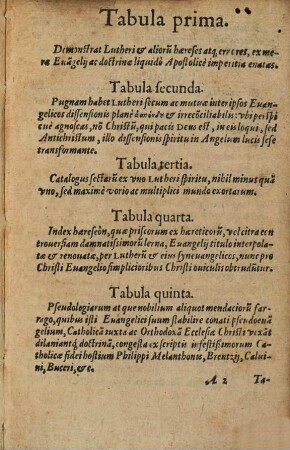 Tabula prima.
Demonstrat Lutheri & aliorū hæreses atq; errores, ex me-
ra Euāgelij ac doctrinæ liquidò Apostolicè imperitia enatas.
Tabula secunda.
Pugnam habet Lutheri secum ac mutuæ inter ipsos Euan-
gelicos dissensionis planè & irrecōciliabilis: vbi perspi
cuè agnoscas, nō Christū, qui pacis Deus est, in eis loqui, sed
Antichristum, illo dissensionis spiritu in Angelum lucis sese
transformante.
Tabula tertia.
Catalogus sectarū ex vno Lutheri spiritu, nihil minus quā
vno, sed maximè vario ac multiplici mundo exortarum.
Tabula quarta.
Index hæreseōn, quæ priscorum ex hæreticorū, vel citra con
trouersiam damnatissimorū lerna, Euangelij titulo interpola-
tæ & renouatæ, per Lutherū & eius syneuangelicos, nunc pro
Christi Euangelio simplicioribus Christi ouiculis obtrudūtur.
Tabula quinta.
Pseudologiarum atque nobilium aliquot mendaciorū far-
rago, quibus isti Euangelici suum stabilire conati pseudoeuā
gelium, Catholicā iuxta ac Orthodoxā Ecclesiā Christi vexāt
dilaniantq; doctrinā, congesta ex scriptis infestissimorum Ca-
tholicæ fidei hostium Philippi Melanthonis, Brentzij, Calui-
ni, Buceri, &c.
A 2 Ta-